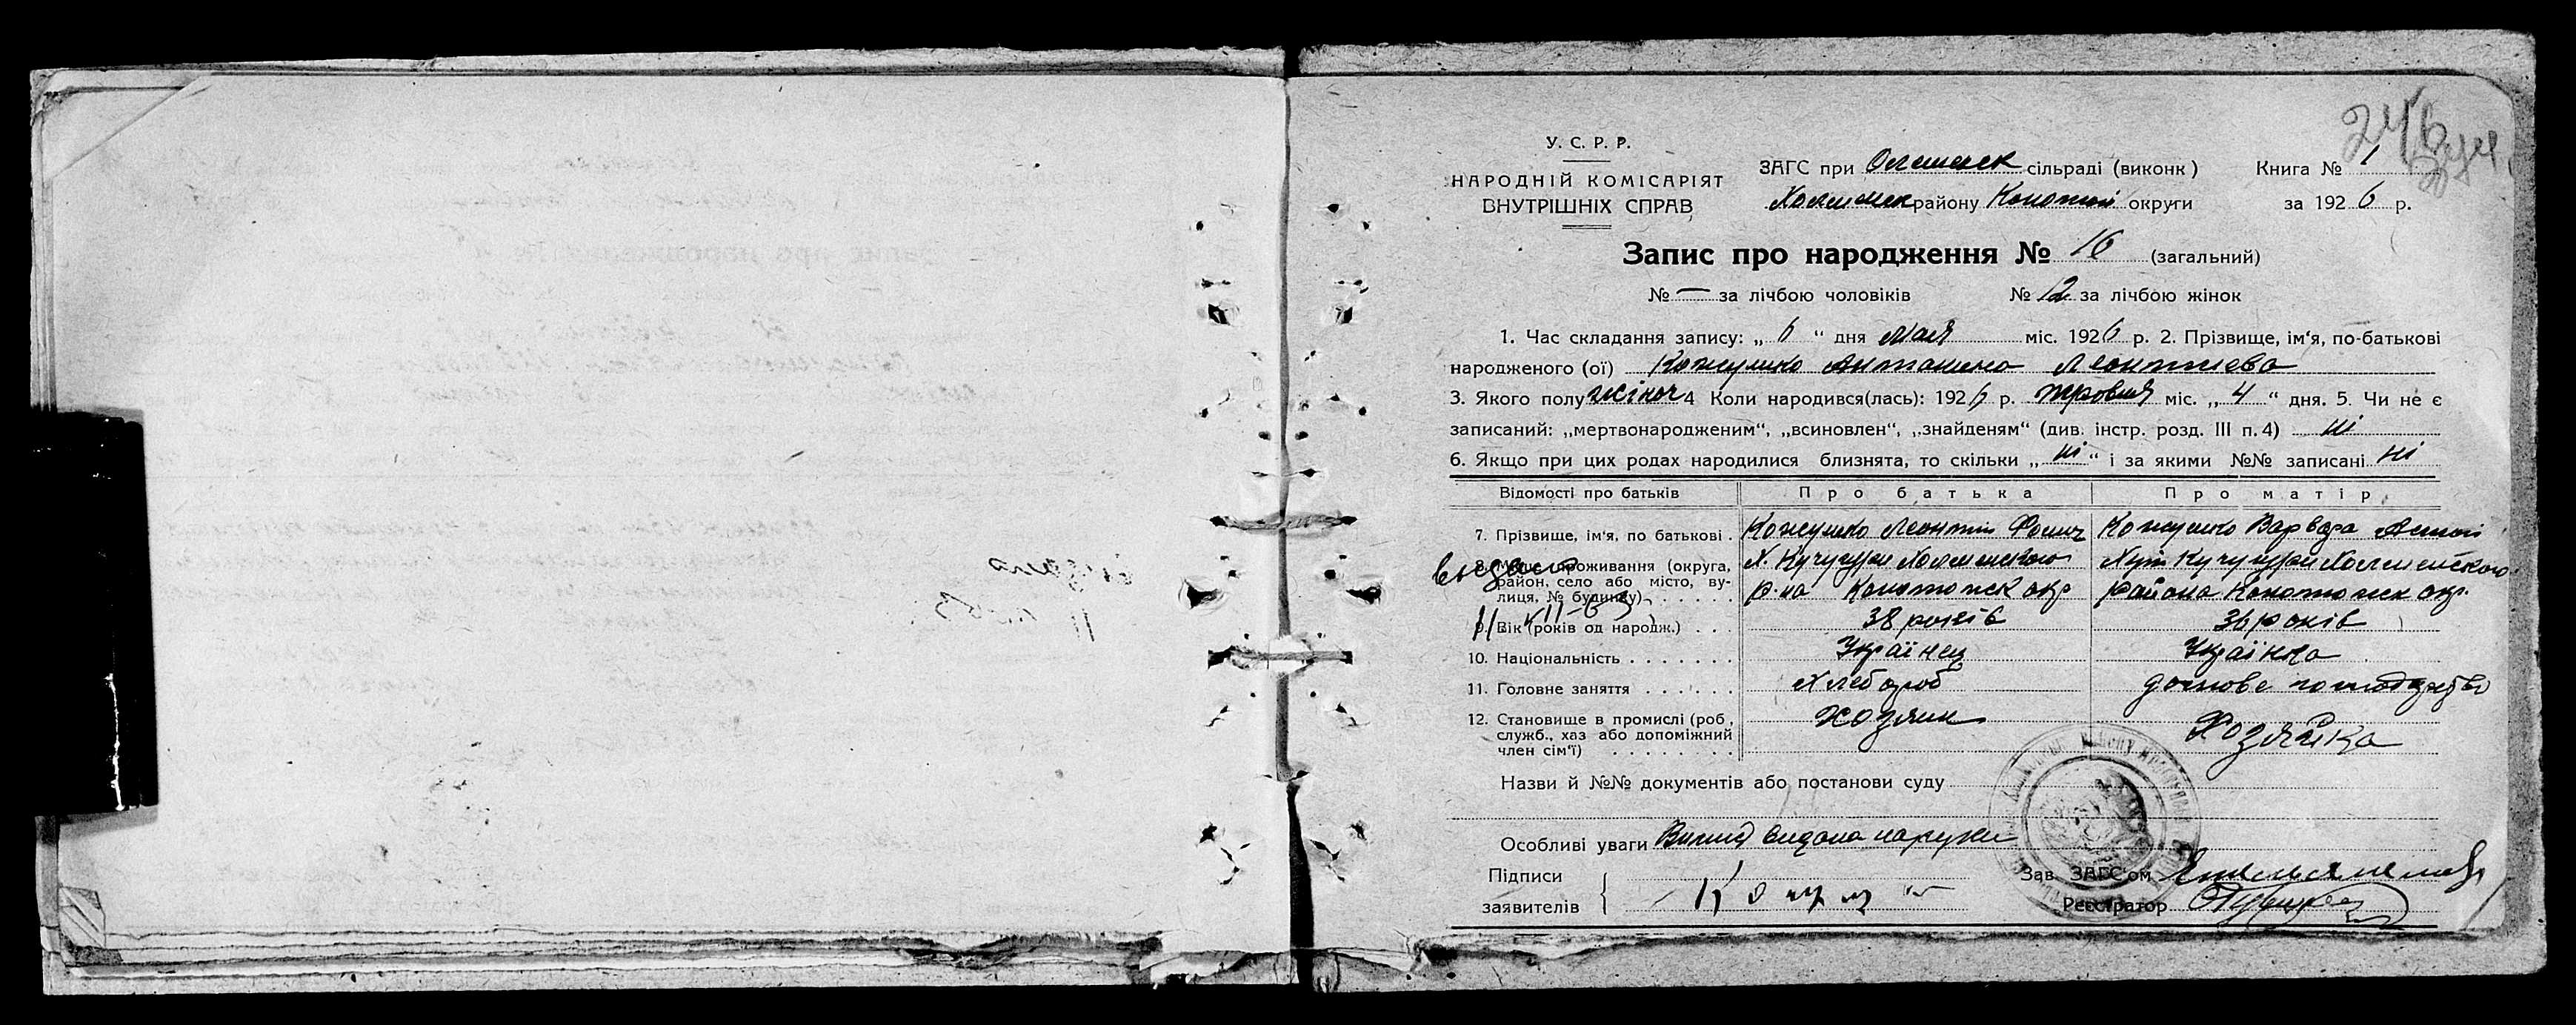 У. С. Р. Р.
НАРОДНІЙ КОМІСАРІЯТ
ВНУТРІШНІХ СПРАВ
ЗАГС при сільраді (виконк) Книга № 1
району Конотоп округи за 1926 р.
Запис про народження № 16 (загальний)
№ — за лічбою чоловіків № 12 за лічбою жінок
1. Час складання запису: „ 6 “ дня мая міс. 1926 р. 2. Прізвище, ім'я, по-батькові
народженого (ої) Кожушко Антонина Леонтиева
3. Якого полу жіноч 4 Коли народився(лась): 1926 р. травня міс. „ 4 “ дня. 5. Чи не є
записаний: „мертвонародженим“, „всиновлен“, „знайденям“ (див. інстр. розд. III п. 4) ні
6. Якщо при цих родах народилися близнята, то скільки „ ні “ і за якими №№ записані ні
Відомості про батьків Про батька Про матір
7. Прізвище, ім'я, по батькові . Кожушко Леонтий Фомич Кожушко Варвара
8. Місце проживання (округа, район, село або місто, вулиця, № будинку) Х. Кучугури р-на Конотопск окр Хут Кучугури района Конотопск окр.
видано
11-XII-53
9. Вік (років од народж.) . . . 38 років 36 років
10. Національність . . . . . . . Українец Українка
11. Головне заняття . . . . . . Хлебороб домове господарство
12. Становище в промислі (роб, служб., хаз або допоміжний член сім'ї) . . . . . . . . Хозяин Хозяйка
Назви й №№ документів або постанови суду
Особливі уваги видана на руки
Підписи
заявителів
Зав. ЗАГС'ом
Реєстратор